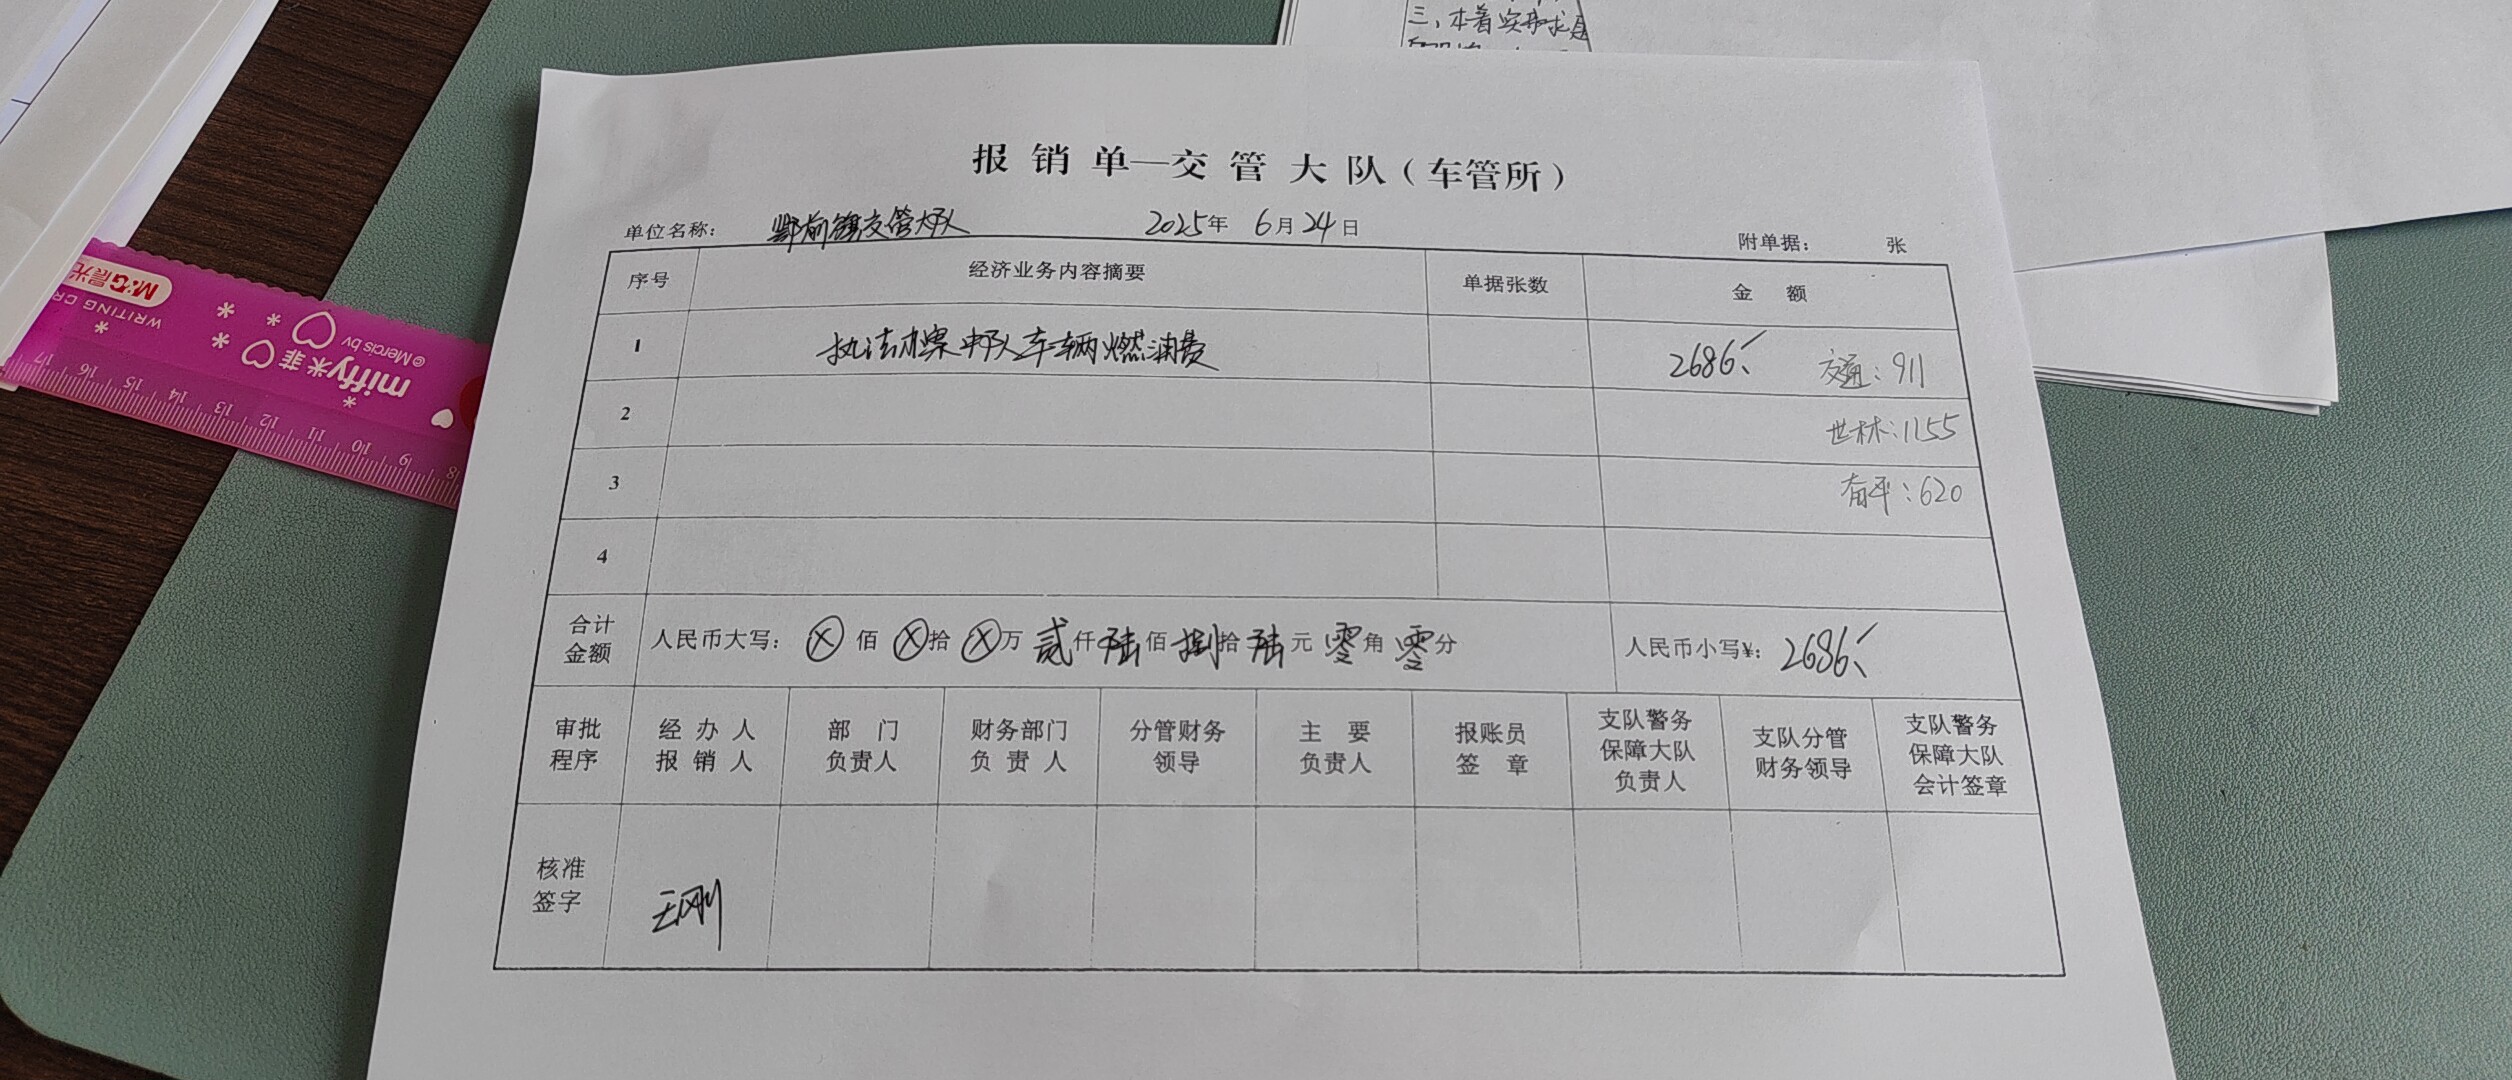 三、本着实事求是
报销单—交管大队（车管所）
单位名称： 鄂前旗交管大队 2025年 6月24日 附单据： 张
序号 经济业务内容摘要 单据张数 金额
1 执法办案中队车辆燃油费 2686 交通：911
2 世林：1155
3 奋平：620
4
合计金额 人民币大写： ⓧ佰ⓧ拾ⓧ万贰仟陆佰捌拾陆元零角零分 人民币小写¥： 2686
审批程序 经办人报销人 部门负责人 财务部门负责人 分管财务领导 主要负责人 报账员签章 支队警务保障大队负责人 支队分管财务领导 支队警务保障大队会计签章
核准签字 王刚
M&G晨光
WRITING CR
miffy米菲
© Mercis bv
17 16 15 14 13 12 11 10 9 8